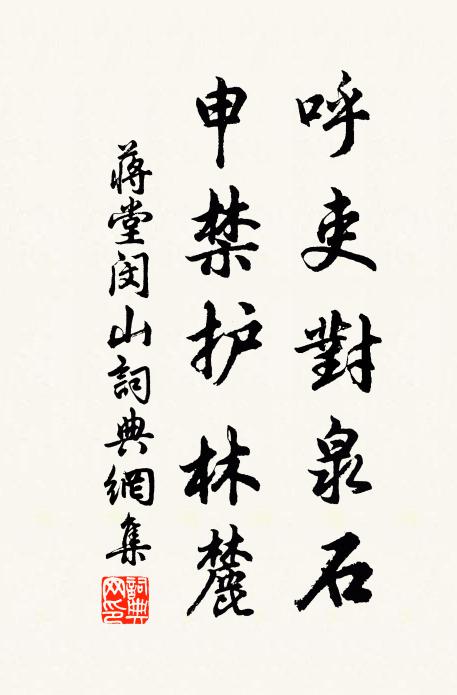 呼吏對泉石
申禁护林麓
蔣堂閔山詞典網集
詞典網印